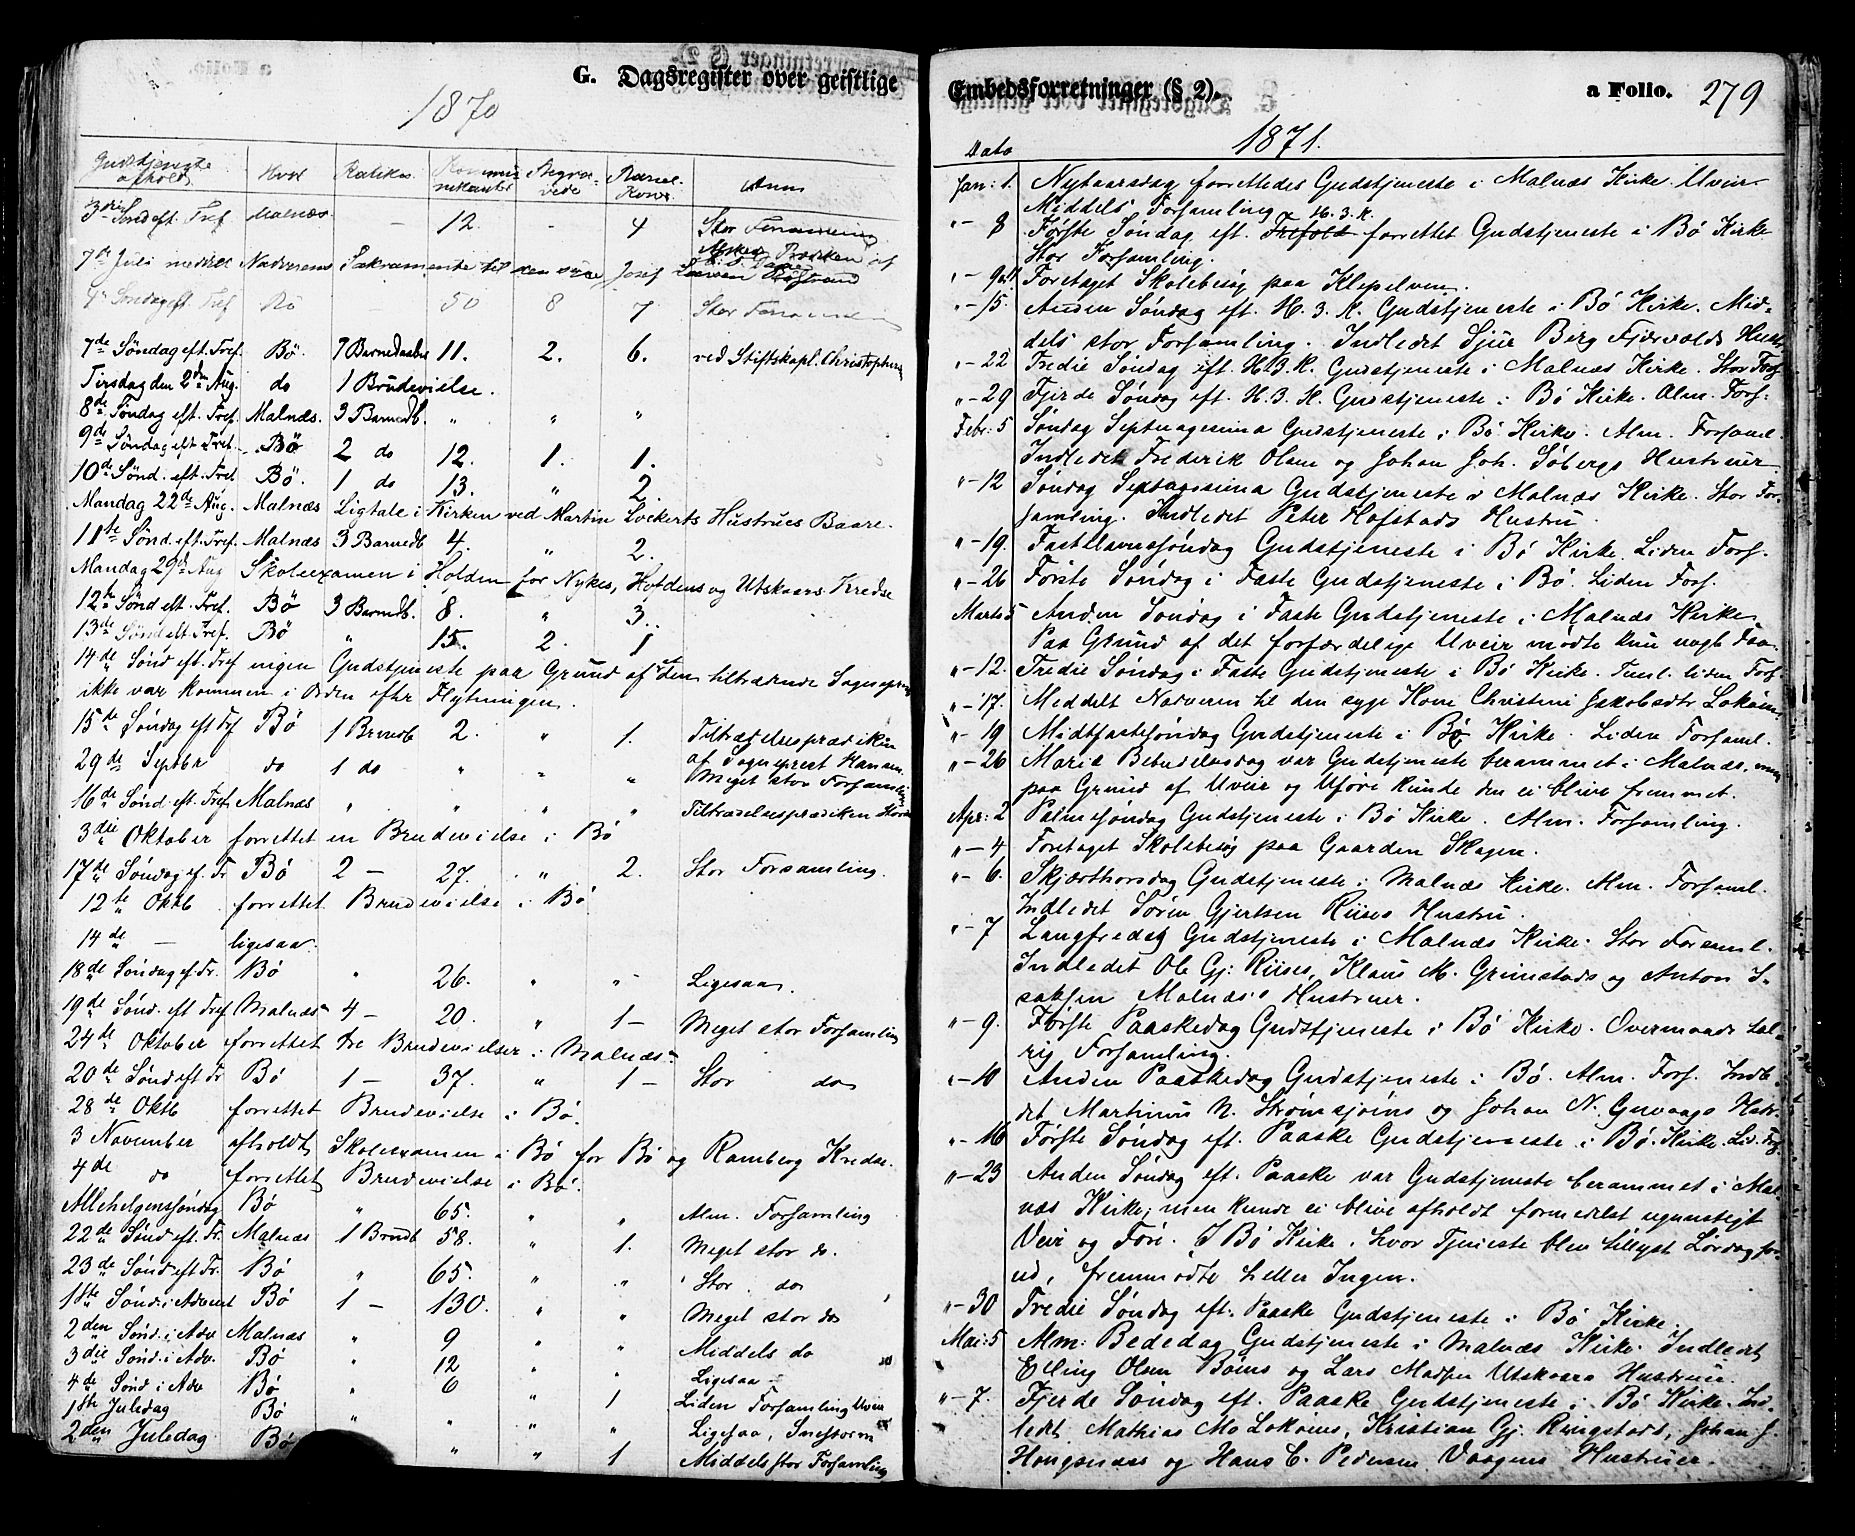 G. Dagsregister over geistlige
1870
Gudstjeneste afholdt | Hvor | Kommunikanter | Begravede | Anm
3die Sønd eft. Tref | Malnæs | 12. | 4 | Stor
7de Juli meddelt Nadverens Sakramente til den syge Josef
Søndag eft. Tref | Bö | 50 | 8 | 7 | Stor
7de Søndag eft. Tref. | Bö. | 7 Barnedaaber | 11. | 2. | 6. | ved Stiftskapl. Christophersen
Tirsdag den 2den Aug. | do | 1 Brudevielse.
8de Søndag eft. Tref. | Malnæs. | 3 Barnedb. | " | " | "
9de Søndag eft Tref. | Bö | 2 do | 12. | 1. | 1.
10de Sønd. eft. Tref | Bö. | 1 do | 13. | " | 2.
Mandag 22de Aug. Malnæs Ligtale i Kirken ved Martin Lockerts Hustrues Baare.
11te Sønd. eft. Tref. | Malnæs | 3 Barnedb | 4. | " | 2.
Mandag 29de Aug Skoleexamen i Holden for Nykes, Hovdens og Utskaars Kredse
12te Sønd eft. Tref. | Bö | 3 Barnedb. | 8. | " | 3.
13de Sønd eft. Tref. | Bö | " | 15. | 2. | 1
14de Sønd eft. Tref ingen Gudstjeneste paa Grund af at den tiltrædende Sogneprest
ikke var kommen i Orden efter Flytningen.
15de Søndag eft Tref | Bö | 1 Barnedb | 2. | " | 1. | Tiltrædelsesprædiken
29de Septbr | do | 1 do | " | " | " | af Sogneprest Hansen. Meget stor Forsamling
16de Sønd. eft. Tref. | Malnæs | " | " | " | " | Tiltrædelsesprædiken
3die Oktober forrettet en Brudevielse i Bö
17de Søndag ef. Tr | Bö | 2 — | 27. | " | 2. | Stor Forsamling.
12te Oktb forrettet Brudevielse i Bö
14de — ligesaa.
18de Søndag ef. Tr. | Bö | " | 26. | " | " | Ligesaa.
19de Sønd. eft Tref | Malnæs | 4 — | 20. | " | 1 — | Meget stor Forsamling
24de Oktober forrettet tre Brudevielser i Malnæs
20de Sønd eft Tr | Bö | 1 — | 37. | " | 1 — | Stor do
28de Oktb forrettet Brudevielse i Bö.
3 November afholdt Skoleexamen i Bö for Bö og Ramberg Kredse.
4de do forrettet Brudevielse i Bö.
Allehelgenssøndag | Bö | " | 65. | " | " | Alm. Forsamling
22de Sønd eft. Tr. | Malnæs | 1 | 58. | " | 1. | Meget stor do.
23de Sønd eft Tr. | Bö | " | 65. | " | " | Stor do
1ste Sønd. i Advent | Bö | 1 — | 130. | " | " | Meget stor do
2den Sønd. i Adv | Malnæs | " | 9 | " | " | Middels do
3die Sønd. i Adv. | Bö | " | 12 | " | " | Ligesaa
4de Sønd i Adv | Bö | " | 6 | " | 1 | Liden Forsamling Uveir
1ste Juledag | Bö | " | " | " | " | Ligesaa, Snestorm
2den Juledag | Bö | " | " | 1 | Middels stor Forsamling
Embedsforretninger (§ 2).
a Folio. 279
Dato
1871.
Jan: 1. Nytaarsdag forrettedes Gudstjeneste i Malnæs Kirke. Uveir
Middels Forsamling
"- 8 Første Søndag eft. Trefold H. 3. K. forrettet Gudstjeneste i Bö Kirke
Stor Forsamling.
Foretaget Skolebesøg paa Klepelven.
"- 15. Anden Søndag eft. H. 3. K. Gudstjeneste i Bö Kirke. Mid-
dels stor Forsamling. Indledet Sjur Berg Fjærvolds Hust.
"- 22 Tredie Søndag eft. H. 3. K. Gudstjeneste i Malnæs Kirke. Stor Fors.
"- 29 Fjerde Søndag eft. H. 3. K. Gudstjeneste i Bö Kirke. Alm. Fors-
Febr: 5 Søndag Septuagesima Gudstjeneste i Bö Kirke. Alm. Forsaml.
Indledet Frederik Olsen og Johan Joh. Søbergs Hustruer
"- 12 Søndag Gudstjeneste i Malnæs Kirke. Stor For-
samling. Indledet Peter Hofstads Hustru.
"- 19. Fastelavnssøndag Gudstjeneste i Bö Kirke. Liden Fors.
"- 26 Første Søndag i Faste Gudstjeneste i Bö. Liden Fors.
Marts 5 Anden Søndag i Faste Gudstjeneste i Malnæs Kirke.
Paa Grund af det forfærdelige Uveir mødte kun nogle Faa.
"- 12. Tredie Søndag i Faste Gudstjeneste i Bö Kirke. Teml. liden Fors.
"- 17. Meddelt Nadveren til den syge Kone Christine Jakobsdtr
"- 19 Midtfastesøndag Gudstjeneste i Bö Kirke. Liden Forsaml.
"- 26 Marie Bebudelsesdag var Gudstjeneste berammet i Malnæs, men
paa Grund af Uveir og Uføre kunde den ei blive fremmet.
Apr: 2 Palmesøndag Gudstjeneste i Bö Kirke. Alm. Forsamling.
"- 4 Foretaget Skolebesøg paa Gaarden Skagen.
"- 6. Skjærthorsdag Gudstjeneste i Malnæs Kirke. Alm. Forsaml.
Indledet Søren Gjertsen Riises Hustru.
"- 7 Langfredag Gudstjeneste i Malnæs Kirke. Stor Forsaml.
Indledet Ole Gj: Riises, Klaus M. Grimstads og Anton I-
saksen Malnæs's Hustruer.
"- 9. Første Paaskedag Gudstjeneste i Bö Kirke. Overmaade tal-
rig Forsamling.
"- 10 Anden Paaskedag Gudstjeneste i Bö. Alm. Fors. Indle-
det Martinus N. Strømsjøins og Johan N. Guvaags Hustr.
"- 16 Første Søndag eft. Paaske Gudstjeneste i Bö Kirke. Lid. Fors.
"- 23 Anden Søndag eft. Paaske var Gudstjeneste berammet i Mal-
næs Kirke, men kunde ei blive afholdt formedelst ugunstigt
Veir og Føre. I Bö Kirke, hvor Tjeneste blev tillyst Lørdag for-
ud, fremmødte heller Ingen.
"- 30 Tredie Søndag eft. Paaske Gudstjeneste i Bö Kirke.
Mai: 5 Alm: Bededag Gudstjeneste i Malnæs Kirke. Indledet
Elling Olsen og Lars Madsen Utskaars Hustruer.
"- 7. Fjerde Søndag eft. Paaske Gudstjeneste i Bö Kirke. Ind-
ledt Mathias Mo Kristian Gj. Ringstads, Johan J.
og Hans C. Pedersen Vaagens Hustruer.